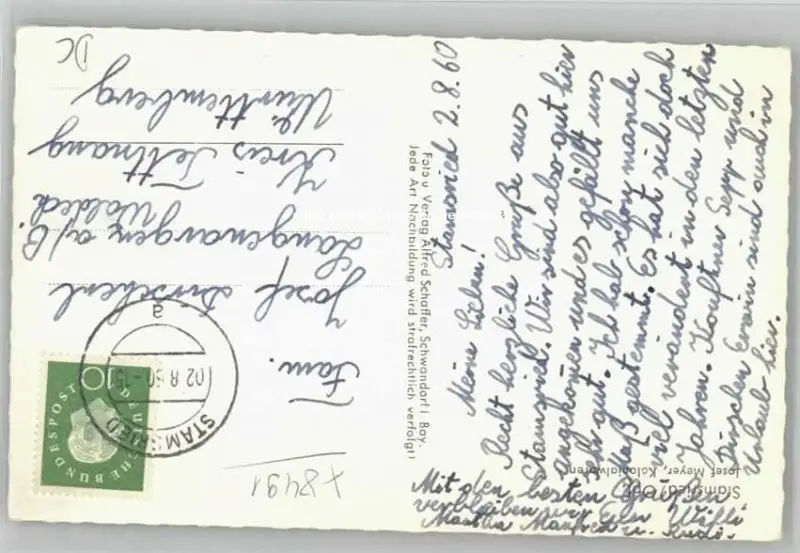 Stamsried 2.8.60
Meine Lieben!
Recht herzliche Grüße aus
Stamsried. Wir sind also gut hier
angekommen und es gefällt uns
sehr gut. Ich hab schon manche
Maß gestemmt. Es hat sich doch
viel verändert in den letzten
Jahren. Sepp und
Erwin sind auch in
Urlaub hier.
Mit den besten Grüßen
verbleiben wir Euer Willi
Martha Manfred u. Rudi.
Fam.
Josef
Langenargen a/B
Kreis Tettnang
Württemberg
DC
Foto u. Verlag Alfred Schaffer, Schwandorf i. Bay.
Jede Art Nachbildung wird strafrechtlich verfolgt!
Stamsried/Opf.
Josef Meyer, Kolonialwaren
DEUTSCHE BUNDESPOST
10
STAMSRIED
02.8.60-15
a
+8491